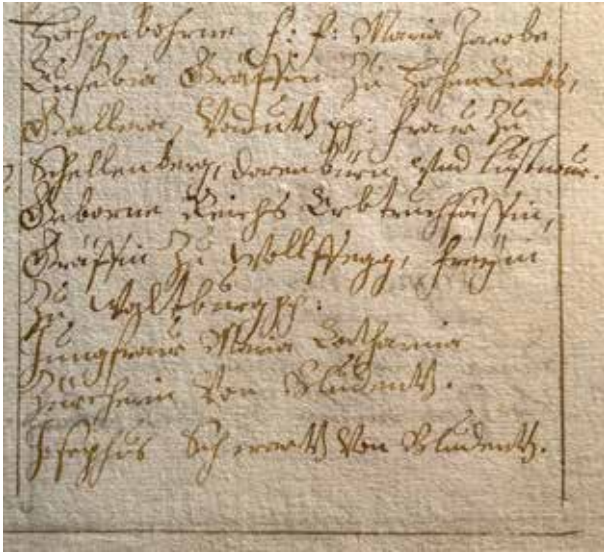 Hochgebohrne F: F: Maria Jacobe
Eusebia Gräffin zu HohenEmbs,
Gallera, Vadutz pp: Fraw zu
Schellenberg, Dorenbürn, vnd Lustnaw.
Geborne Reichs Erbtruchsässin,
Gräffin zu Wolffegg, Freÿin
zu Waltburg pp:
Jungfraw Maria Catharina
von Bludentz.
Josephus von Bludentz.